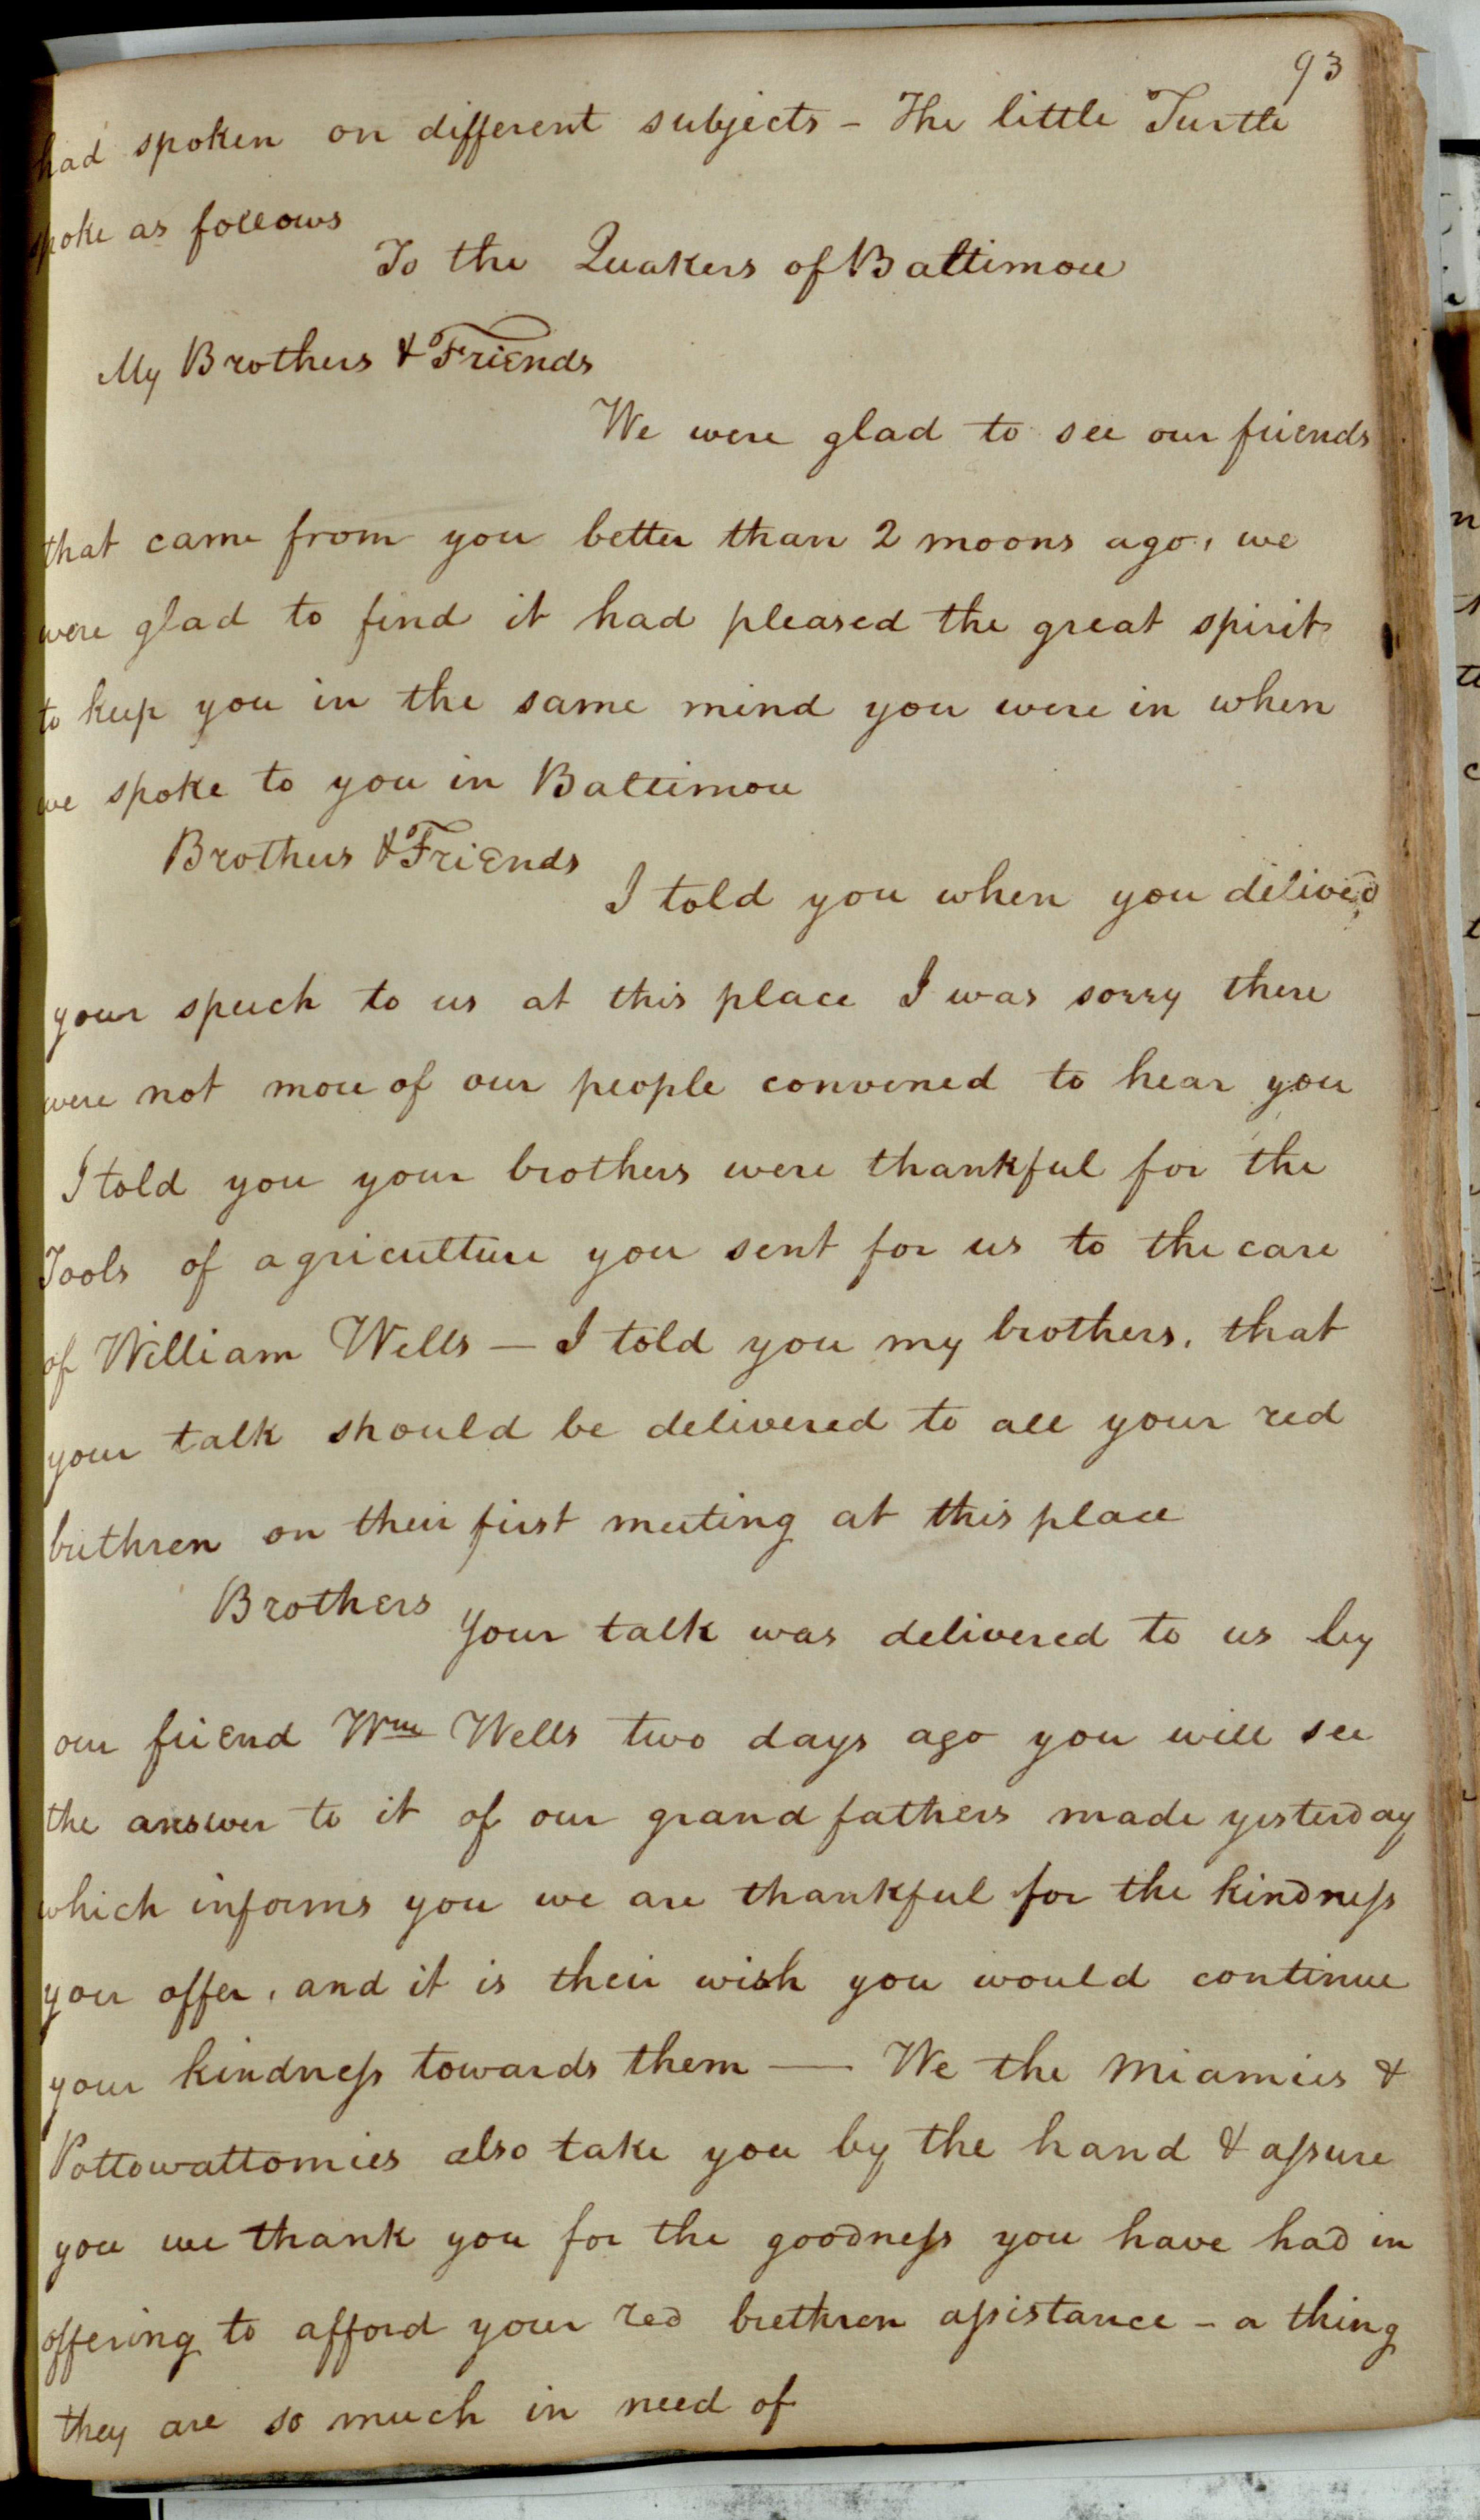 93
had spoken on different subjects – The little Turtle
spoke as follows
To the Quakers of Baltimore
My Brothers & Friends
We were glad to see our friends
that came from you better than 2 moons ago, we
were glad to find it had pleased the great spirit
to keep you in the same mind you were in when
we spoke to you in Baltimore
Brothers & Friends
I told you when you deliver'd
your speech to us at this place I was sorry there
were not more of our people convened to hear you
I told you your brothers were thankful for the
Tools of agriculture you sent for us to the care
of William Wells — I told you my brothers, that
your talk should be delivered to all your red
brethren on their first meeting at this place
Brothers
Your talk was delivered to us by
our friend Wm Wells two days ago you will see
the answer to it of our grand fathers made yesterday
which informs you we are thankful for the kindness
you offer, and it is their wish you would continue
your kindness towards them — We the Miamies &
Pottowattomies also take you by the hand & assure
you we thank you for the goodness you have had in
offering to afford your red brethren assistance – a thing
they are so much in need of